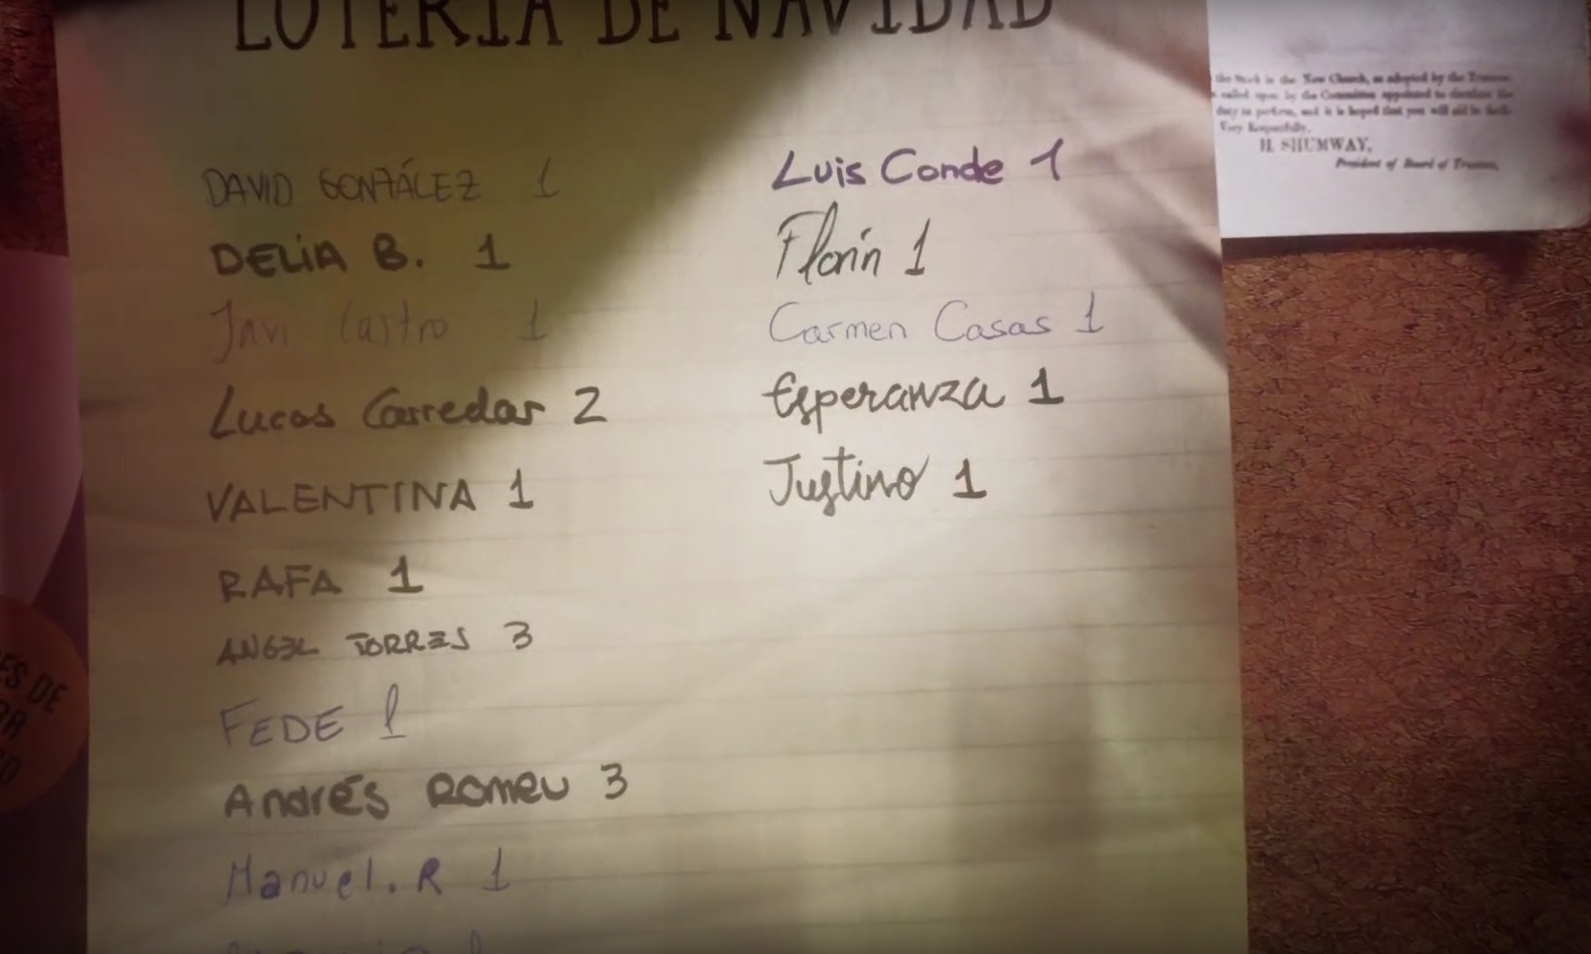 LOTERÍA DE NAVIDAD
DAVID GONZÁLEZ 1
DELIA B. 1
Javi Castro 1
Lucas Carredar 2
VALENTINA 1
RAFA 1
ANGEL TORRES 3
FEDE 1
Andrés Romeu 3
Manuel.R 1
Luis Conde 1
Florín 1
Carmen Casas 1
Esperanza 1
Justino 1
the Stock in the New Church, as adopted by the Trustees
called upon by the Committee appointed to circulate the
duty to perform, and it is hoped that you will aid in
Very Respectfully,
H. SHUMWAY,
President of Board of Trustees.
ES DE